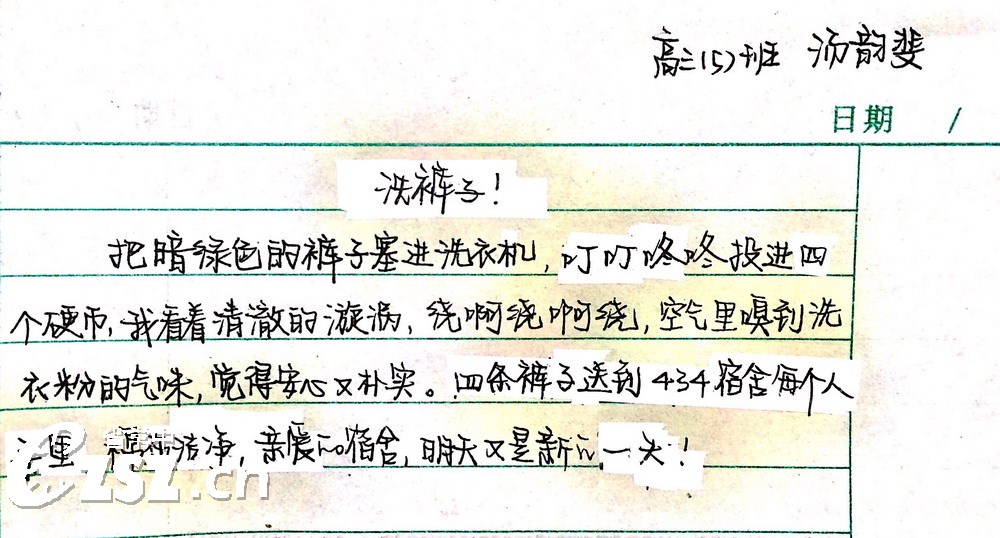 高三(5)班 汤韵斐
日期 /
洗裤子!
把暗绿色的裤子塞进洗衣机,叮叮咚咚投进四
个硬币,我看着清澈的漩涡,绕啊绕啊绕,空气里嗅到洗
衣粉的气味,觉得安心又朴实。四条裤子送到434宿舍每个人
洁净,亲爱的宿舍,明天又是新的一天!
zsz.cn